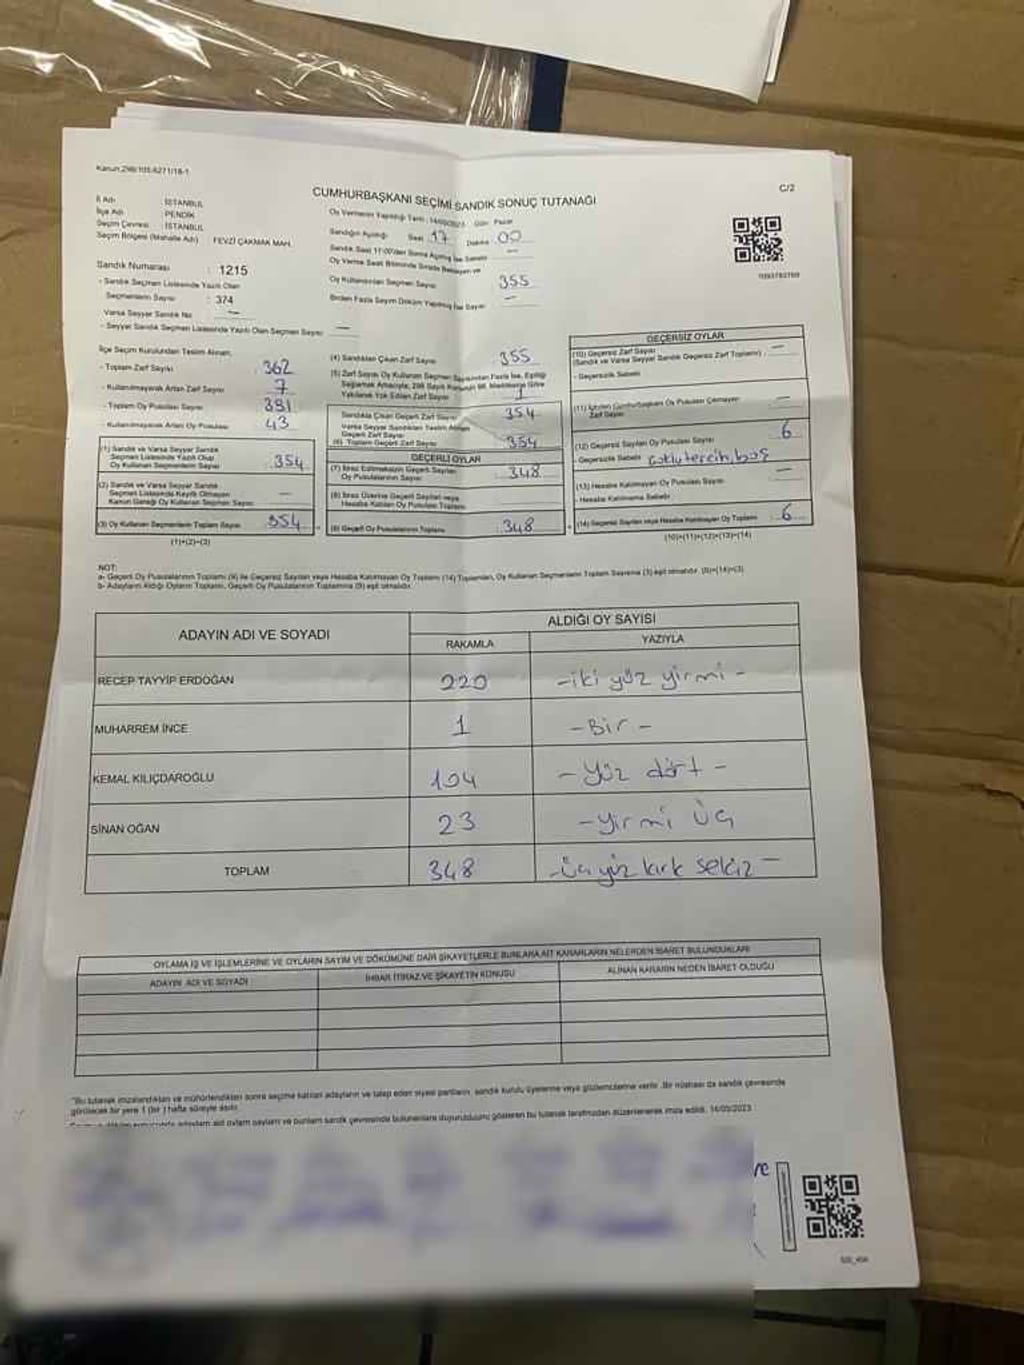 Kanun:298/105-6271/18-1
C/2
CUMHURBAŞKANI SEÇİMİ SANDIK SONUÇ TUTANAĞI
İl Adı : İSTANBUL
İlçe Adı : PENDİK
Seçim Çevresi : İSTANBUL
Seçim Bölgesi (Mahalle Adı) FEVZİ ÇAKMAK MAH.
Sandık Numarası : 1215
- Sandık Seçmen Listesinde Yazılı Olan
Seçmenlerin Sayısı : 374
Varsa Seyyar Sandık No : —
- Seyyar Sandık Seçmen Listesinde Yazılı Olan Seçmen Sayısı —
Oy Vermenin Yapıldığı Tarih : 14/05/2023 Gün: Pazar
Sandığın Açıldığı Saat 17 Dakika 00
Oy Verme Saati Bitiminde Sırada Bekleyen ve
Oy Kullandırılan Seçmen Sayısı 355
Birden Fazla Sayım Döküm Yapılmış İse Sayısı —
İlçe Seçim Kurulundan Teslim Alınan,
- Toplam Zarf Sayısı 362
- Kullanılmayarak Artan Zarf Sayısı 7
- Toplam Oy Pusulası Sayısı 391
- Kullanılmayarak Artan Oy Pusulası 43
(1) Sandık ve Varsa Seyyar Sandık
Seçmen Listesinde Yazılı Olup
Oy Kullanan Seçmenlerin Sayısı 354
(2) Sandık ve Varsa Seyyar Sandık
Seçmen Listesinde Kayıtlı Olmayan
Kanun Gereği Oy Kullanan Seçmen Sayısı —
(3) Oy Kullanan Seçmenlerin Toplam Sayısı 354
(1)+(2)=(3)
(4) Sandıktan Çıkan Zarf Sayısı 355
(5) Zarf Sayısı Oy Kullanan Seçmen Sayısından Fazla İse, Eşitliği
Sağlamak Amacıyla, 298 Sayılı Kanunun 98. Maddesine Göre
Yakılarak Yok Edilen Zarf Sayısı 1
Sandıkta Çıkan Geçerli Zarf Sayısı 354
Varsa Seyyar Sandıktan Teslim Alınan
Geçerli Zarf Sayısı
(6) Toplam Geçerli Zarf Sayısı 354
GEÇERLİ OYLAR
(7) İtiraz Edilmeksizin Geçerli Sayılan
Oy Pusulalarının Sayısı 348
(8) İtiraz Üzerine Geçerli Sayılan veya
Hesaba Katılan Oy Pusulaları Toplamı
(9) Geçerli Oy Pusulalarının Toplamı 348
GEÇERSİZ OYLAR
(10) Geçersiz Zarf Sayısı —
(Sandık ve Varsa Seyyar Sandık Geçersiz Zarf Toplamı)
- Geçersizlik Sebebi
(11) İçinden Cumhurbaşkanı Oy Pusulası Çıkmayan
Zarf Sayısı —
(12) Geçersiz Sayılan Oy Pusulası Sayısı 6
- Geçersizlik Sebebi çoklu tercih, boş
(13) Hesaba Katılmayan Oy Pusulası Sayısı —
- Hesaba Katılmama Sebebi
(14) Geçersiz Sayılan veya Hesaba Katılmayan Oy Toplamı 6
(10)+(11)+(12)+(13)=(14)
NOT:
a- Geçerli Oy Pusulalarının Toplamı (9) ile Geçersiz Sayılan veya Hesaba Katılmayan Oy Toplamı (14) Toplamları, Oy Kullanan Seçmenlerin Toplam Sayısına (3) eşit olmalıdır. (9)+(14)=(3)
b- Adayların Aldığı Oyların Toplamı, Geçerli Oy Pusulalarının Toplamına (9) eşit olmalıdır.
ADAYIN ADI VE SOYADI
ALDIĞI OY SAYISI
RAKAMLA YAZIYLA
RECEP TAYYİP ERDOĞAN 220 -iki yüz yirmi-
MUHARREM İNCE 1 -Bir-
KEMAL KILIÇDAROĞLU 104 -Yüz dört-
SİNAN OĞAN 23 -Yirmi Üç
TOPLAM 348 -Üç yüz kırk sekiz-
OYLAMA İŞ VE İŞLEMLERİNE VE OYLARIN SAYIM VE DÖKÜMÜNE DAİR ŞİKAYETLERLE BUNLARA AİT KARARLARIN NELERDEN İBARET BULUNDUKLARI
ADAYIN ADI VE SOYADI İHBAR İTİRAZ VE ŞİKAYETİN KONUSU ALINAN KARARIN NEDEN İBARET OLDUĞU
"Bu tutanak imzalandıktan ve mühürlendikten sonra seçime katılan adayların ve talep eden siyasi partilerin, sandık kurulu üyelerine veya gözlemcilerine verilir. Bir nüshası da sandık çevresinde
görülecek bir yere 1 (bir) hafta süreyle asılır.